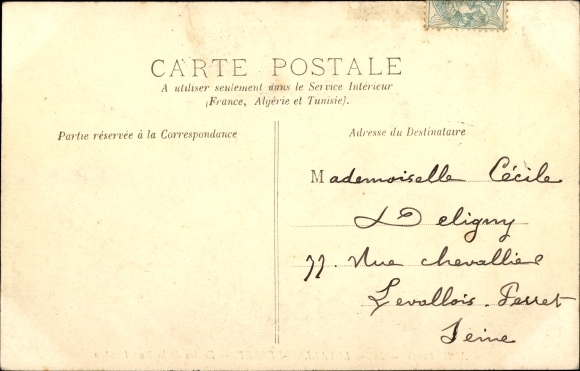 CARTE POSTALE
A utiliser seulement dans le Service Intérieur
(France, Algérie et Tunisie).
Partie réservée à la Correspondance
Adresse du Destinataire
Mademoiselle Cécile
Deligny
77. Rue chevallier
Levallois-Perret
Seine